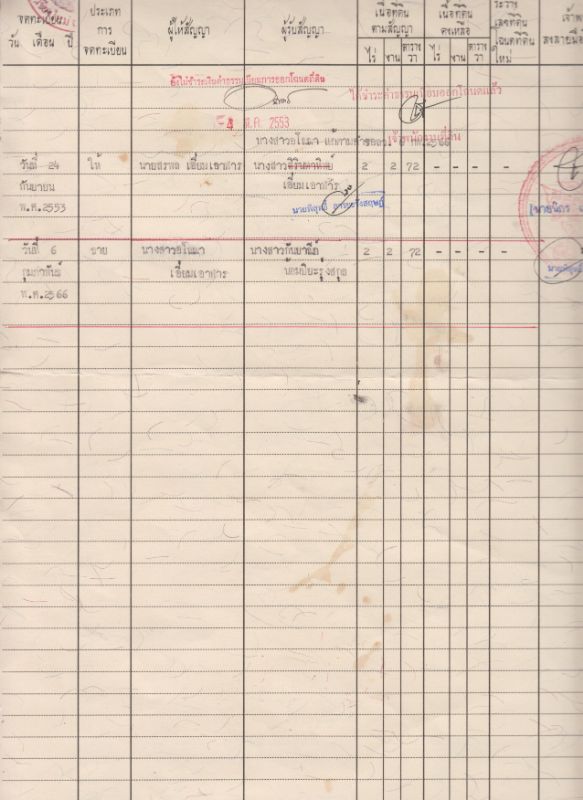 จดทะเบียน
วัน เดือน ปี
ประเภท
การ
จดทะเบียน
ผู้ให้สัญญา
ผู้รับสัญญา
เนื้อที่ดิน
ตามสัญญา
ไร่ งาน ตาราง
วา
เนื้อที่ดิน
คงเหลือ
ไร่ งาน ตาราง
วา
ระวาง
เลขที่ดิน
โฉนดที่ดิน
ใหม่
เจ้าพ
ลงลายมือ
ยังไม่ชำระเงินค่าธรรมเนียมการออกโฉนดที่ดิน
ได้ชำระค่าธรรมเนียมออกโฉนดแล้ว
2553
นางสาวอโนมา
เจ้าพนักงานที่ดิน
วันที่ 24 ให้ นายสรพล เอี่ยมเอาสาร นางสาว 2 2 72 - - - -
กันยายน เอี่ยมเอาสาร
พ.ศ.2553
วันที่ 6 ขาย นางสาวอโนมา นางสาวกันยาณีย์ 2 2 72 - - - -
กุมภาพันธ์ เอี่ยมเอาสาร นอมปิยะรุ่งสกุล
พ.ศ.2566